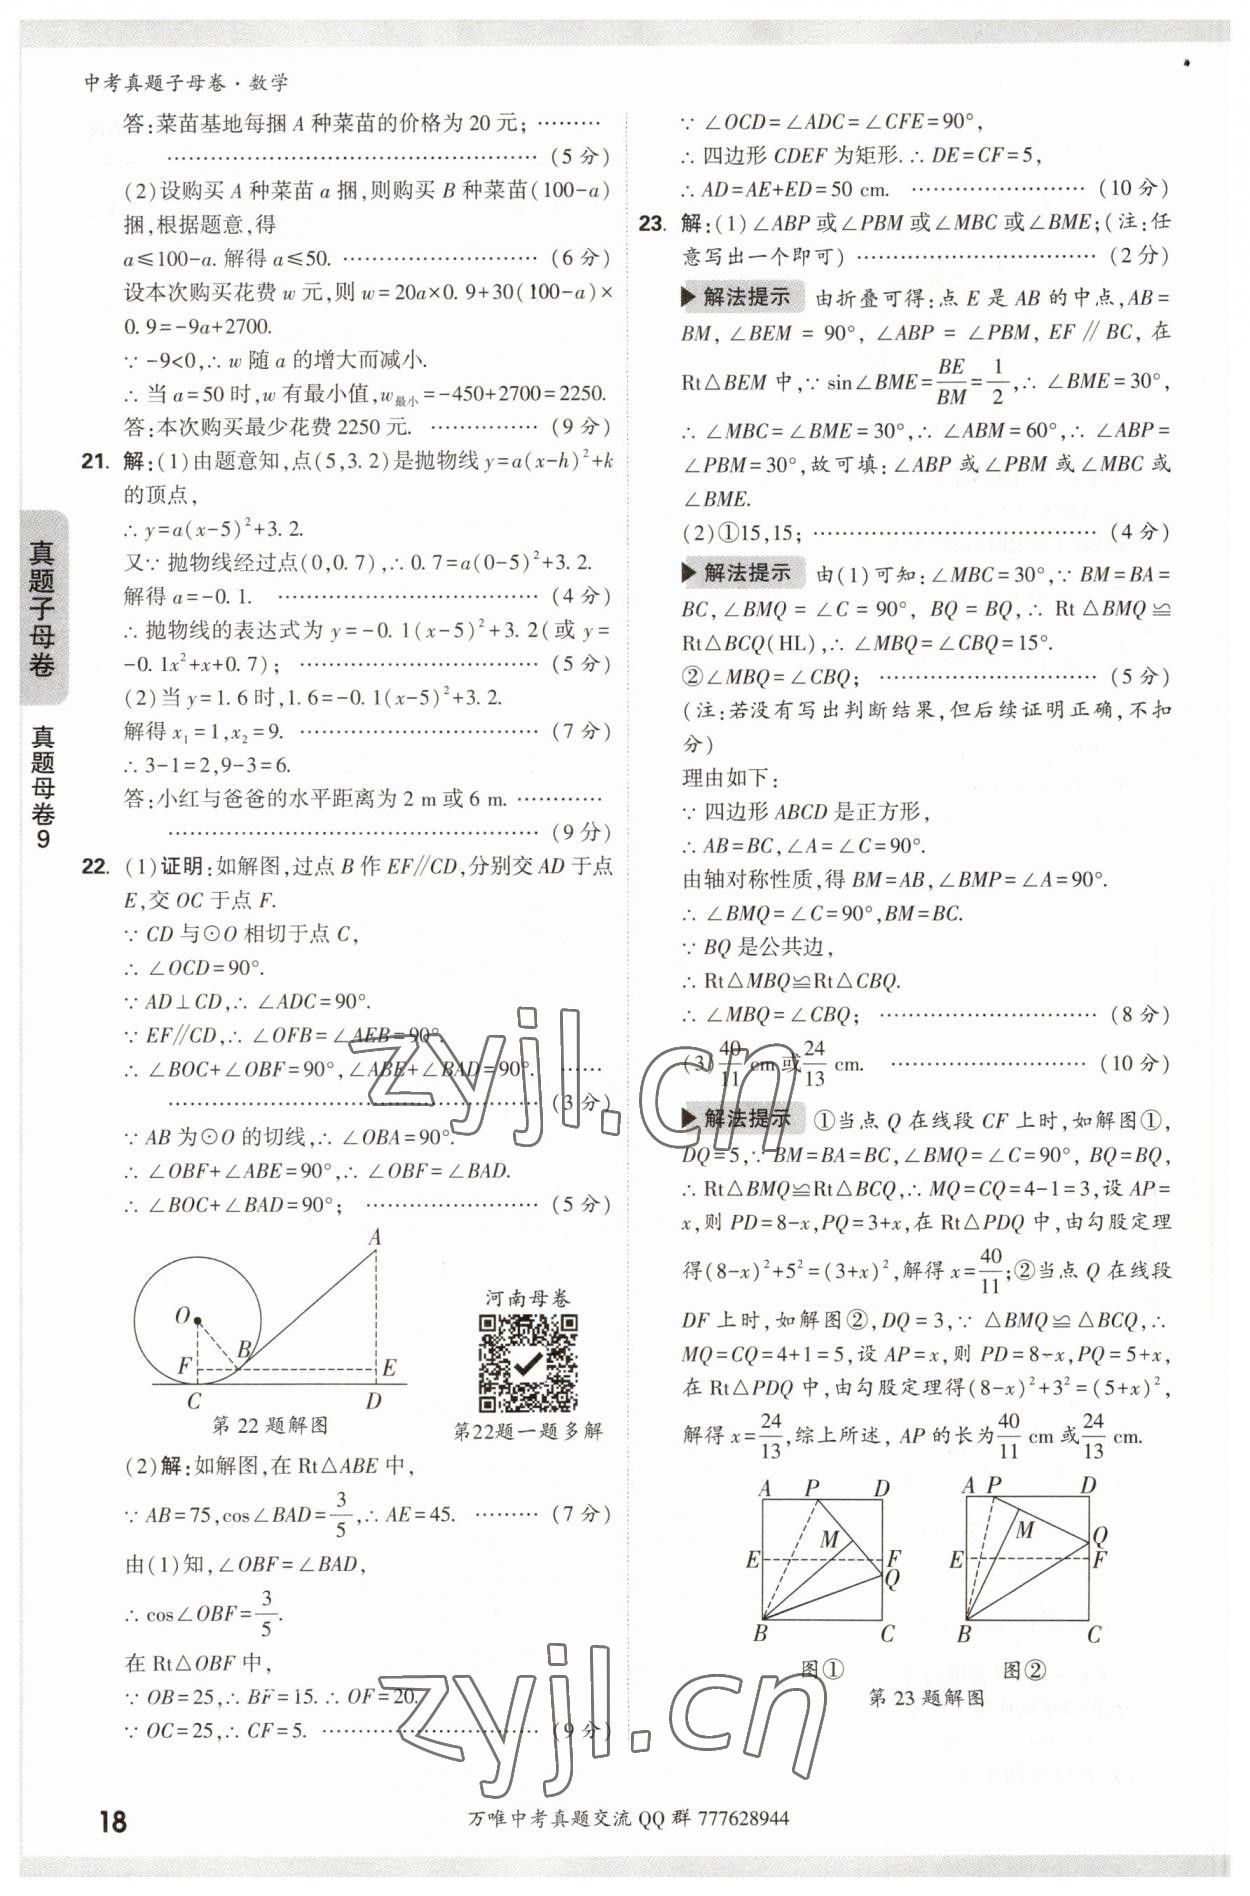 中考真题子母卷·数学
答:菜苗基地每捆 A 种菜苗的价格为 20 元; ………
………………………………… (5 分)
(2)设购买 A 种菜苗 a 捆,则购买 B 种菜苗(100-a)
捆,根据题意,得
a≤100-a. 解得 a≤50. ………………………… (6 分)
设本次购买花费 w 元,则 w=20a×0.9+30(100-a)×
0.9=-9a+2700.
∵ -9<0,∴ w 随 a 的增大而减小.
∴ 当 a=50 时,w 有最小值,w最小=-450+2700=2250.
答:本次购买最少花费 2250 元. …………… (9 分)
21. 解:(1)由题意知,点(5,3.2)是抛物线 y=a(x-h)²+k
的顶点,
∴ y=a(x-5)²+3.2.
又∵ 抛物线经过点(0,0.7),∴ 0.7=a(0-5)²+3.2.
解得 a=-0.1. ………………………………… (4 分)
∴ 抛物线的表达式为 y=-0.1(x-5)²+3.2(或 y=
-0.1x²+x+0.7); ……………………………… (5 分)
(2)当 y=1.6 时,1.6=-0.1(x-5)²+3.2.
解得 x₁=1,x₂=9. ……………………………… (7 分)
∴ 3-1=2,9-3=6.
答:小红与爸爸的水平距离为 2 m 或 6 m. …………
………………………………… (9 分)
22. (1)证明:如解图,过点 B 作 EF∥CD,分别交 AD 于点
E,交 OC 于点 F.
∵ CD 与⊙O 相切于点 C,
∴ ∠OCD=90°.
∵ AD⊥CD,∴ ∠ADC=90°.
∵ EF∥CD,∴ ∠OFB=∠AEB=90°.
∴ ∠BOC+∠OBF=90°,∠ABE+∠BAD=90°. ……
………………………………… (3 分)
∵ AB 为⊙O 的切线,∴ ∠OBA=90°.
∴ ∠OBF+∠ABE=90°,∴ ∠OBF=∠BAD.
∴ ∠BOC+∠BAD=90°; …………………… (5 分)
A
O
B
F
E
C
D
第 22 题解图
河南母卷
第22题一题多解
(2)解:如解图,在 Rt△ABE 中,
∵ AB=75,cos∠BAD=3/5,∴ AE=45. ……… (7 分)
由(1)知,∠OBF=∠BAD,
∴ cos∠OBF=3/5.
在 Rt△OBF 中,
∵ OB=25,∴ BF=15. ∴ OF=20.
∵ OC=25,∴ CF=5. ………………………… (9 分)
∵ ∠OCD=∠ADC=∠CFE=90°,
∴ 四边形 CDEF 为矩形. ∴ DE=CF=5,
∴ AD=AE+ED=50 cm. …………………… (10 分)
23. 解:(1)∠ABP 或∠PBM 或∠MBC 或∠BME;(注:任
意写出一个即可) …………………………… (2 分)
▶解法提示 由折叠可得:点 E 是 AB 的中点,AB=
BM,∠BEM = 90°,∠ABP = ∠PBM,EF∥BC,在
Rt△BEM 中,∵ sin∠BME=BE/BM=1/2,∴ ∠BME=30°,
∴ ∠MBC=∠BME=30°,∴ ∠ABM=60°,∴ ∠ABP=
∠PBM=30°,故可填:∠ABP 或∠PBM 或∠MBC 或
∠BME.
(2)①15,15; ………………………………… (4 分)
▶解法提示 由(1)可知:∠MBC=30°,∵ BM=BA=
BC,∠BMQ = ∠C = 90°, BQ=BQ,∴ Rt△BMQ≌
Rt△BCQ(HL),∴ ∠MBQ=∠CBQ=15°.
②∠MBQ=∠CBQ; ………………………… (5 分)
(注:若没有写出判断结果,但后续证明正确,不扣
分)
理由如下:
∵ 四边形 ABCD 是正方形,
∴ AB=BC,∠A=∠C=90°.
由轴对称性质,得 BM=AB,∠BMP=∠A=90°.
∴ ∠BMQ=∠C=90°,BM=BC.
∵ BQ 是公共边,
∴ Rt△MBQ≌Rt△CBQ.
∴ ∠MBQ=∠CBQ; ………………………… (8 分)
(3)40/11 cm 或24/13 cm. ……………………… (10 分)
▶解法提示 ①当点 Q 在线段 CF 上时,如解图①,
DQ=5,∵ BM=BA=BC,∠BMQ=∠C=90°, BQ=BQ,
∴ Rt△BMQ≌Rt△BCQ,∴ MQ=CQ=4-1=3,设 AP=
x,则 PD=8-x,PQ=3+x,在 Rt△PDQ 中,由勾股定理
得(8-x)²+5²=(3+x)²,解得 x=40/11;②当点 Q 在线段
DF 上时,如解图②,DQ=3,∵ △BMQ≌△BCQ,∴
MQ=CQ=4+1=5,设 AP=x,则 PD=8-x,PQ=5+x,
在 Rt△PDQ 中,由勾股定理得(8-x)²+3²=(5+x)²,
解得 x=24/13,综上所述, AP 的长为40/11 cm 或24/13 cm.
A P D
M
E F
Q
B C
图①
A P D
M
Q
E F
B C
图②
第 23 题解图
真题子母卷
真题母卷9
zyjl.cn
zyjl.cn
18
万唯中考真题交流 QQ 群 777628944